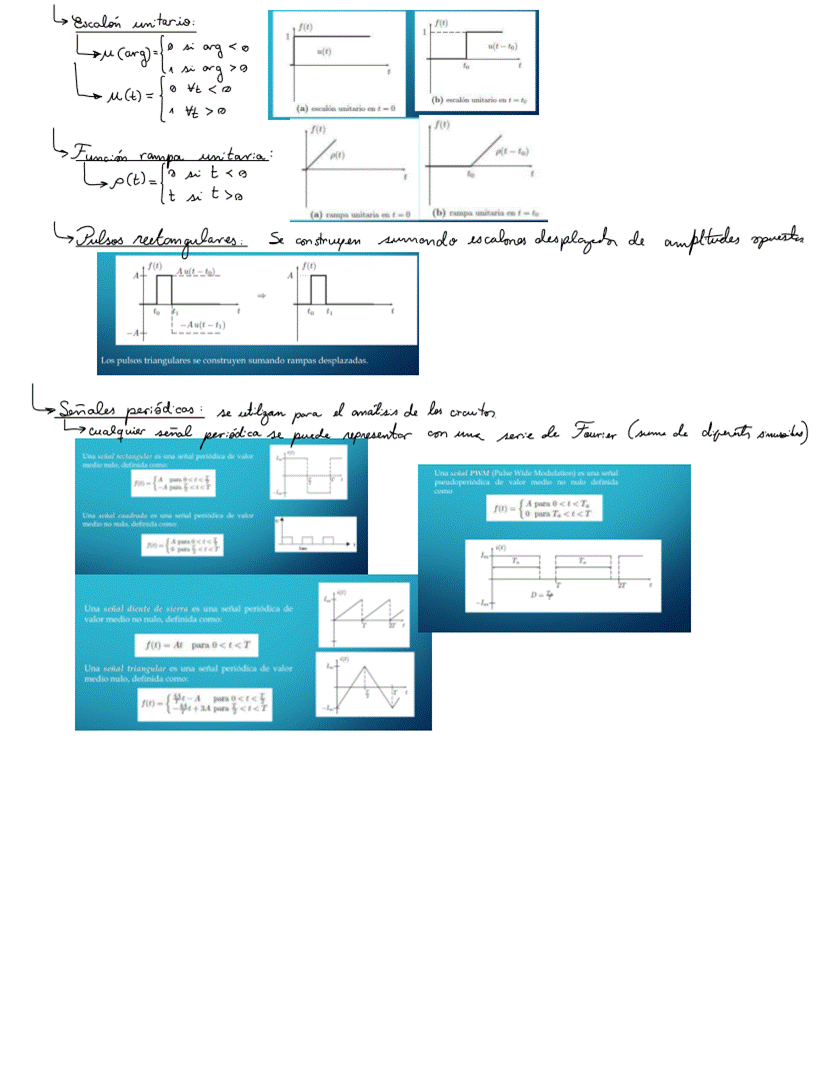 Escalón unitario:
μ(arg) = { 0 si arg < 0
1 si arg > 0
μ(t) = { 0 ∀t < 0
1 ∀t > 0
f(t)
1
u(t)
t
(a) escalón unitario en t = 0
f(t)
1
u(t − t₀)
t₀
t
(b) escalón unitario en t = t₀
Función rampa unitaria:
ρ(t) = { 0 si t < 0
t si t > 0
f(t)
ρ(t)
t
(a) rampa unitaria en t = 0
f(t)
ρ(t − t₀)
t₀
t
(b) rampa unitaria en t = t₀
Pulsos rectangulares: Se construyen sumando escalones desplazados de ampltudes opuestas
f(t)
A
A u(t − t₀)
t₀ t₁ t
−A u(t − t₁)
−A
⇒
f(t)
A
t₀ t₁ t
Los pulsos triangulares se construyen sumando rampas desplazadas.
Señales periódicas: se utilizan para el análisis de los circuitos
cualquier señal periódica se puede representar con una serie de Fourier (suma de diferents sinusoides)
Una señal rectangular es una señal periódica de valor
medio nulo, definida como:
f(t) = { A para 0 < t < T/2
−A para T/2 < t < T
Una señal cuadrada es una señal periódica de valor
medio no nulo, definida como:
f(t) = { A para 0 < t < T/2
0 para T/2 < t < T
Una señal PWM (Pulse Wide Modulation) es una señal
pseudoperiódica de valor medio no nulo definida
como
f(t) = { A para 0 < t < Tₐ
0 para Tₐ < t < T
i(t)
Iₘ
Tₐ Tₐ
T 2T t
D = Tₐ/T
−Iₘ
Una señal diente de sierra es una señal periódica de
valor medio no nulo, definida como:
f(t) = At para 0 < t < T
i(t)
Iₘ
T 2T t
Una señal triangular es una señal periódica de valor
medio nulo, definida como:
f(t) = { 4A/T t − A para 0 < t < T/2
−4A/T t + 3A para T/2 < t < T
i(t)
Iₘ
T/2 T t
−Iₘ